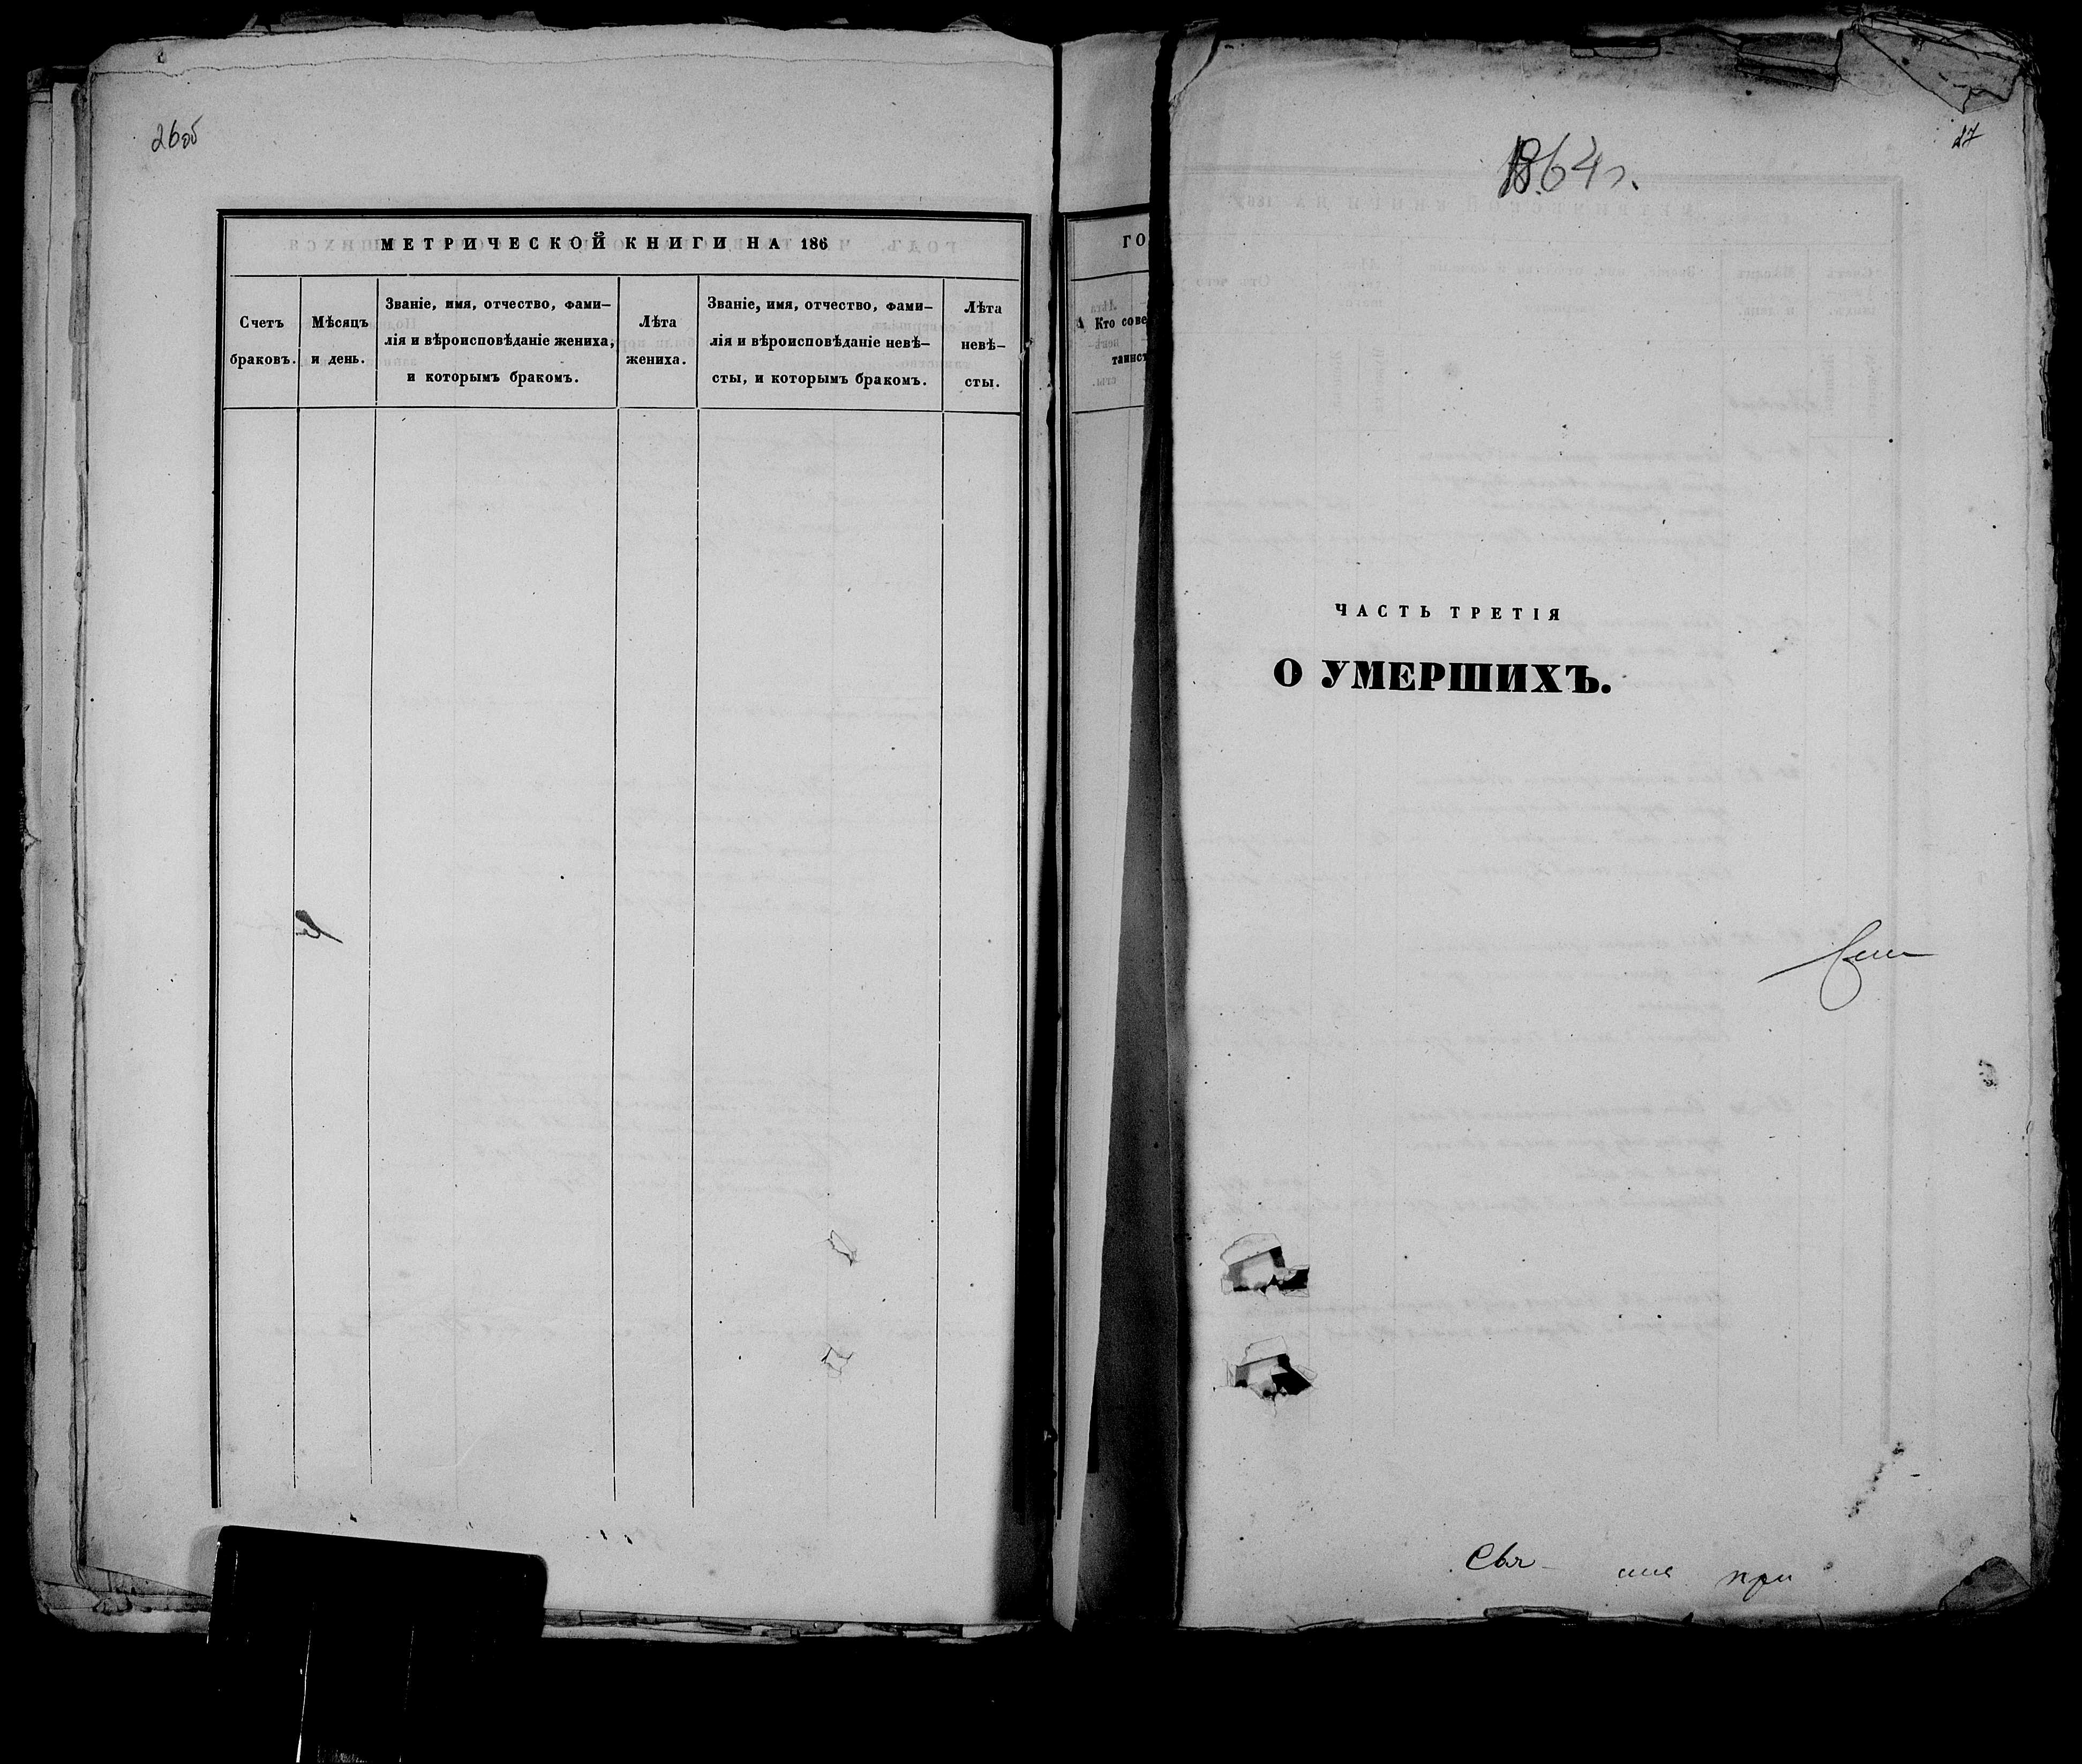 26об
МЕТРИЧЕСКОЙ КНИГИ НА 186
Счетъ
браковъ.
Мѣсяцъ
и день.
Званіе, имя, отчество, фами–
лія и вѣроисповѣданіе жениха,
и которымъ бракомъ.
Лѣта
жениха.
Званіе, имя, отчество, фами–
лія и вѣроисповѣданіе невѣ–
сты, и которымъ бракомъ.
Лѣта
невѣ–
сты.
ГО
Кто сове
таинст
27
1864 г.
ЧАСТЬ ТРЕТІЯ
О УМЕРШИХЪ.
при